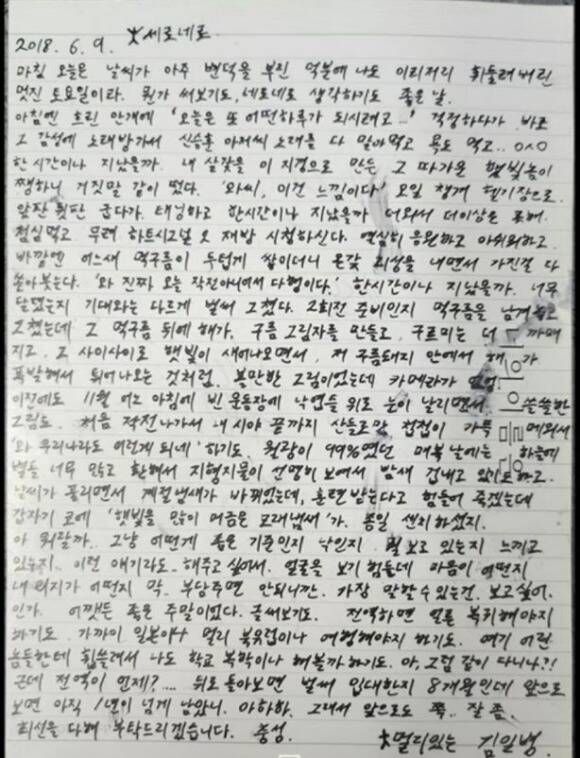 ★세로네로
2018. 6. 9.
마침 오늘은 날씨가 아주 변덕을 부린 덕분에 나도 이리저리 휘둘려버린
멋진 토요일이라. 뭔가 써보기도, 네로네로 생각하기도 좋은 날.
아침엔 흐린 안개에 '오늘은 또 어떤하루가 되시려고...' 걱정하다가 바로
그 감성에 노래방가서 신승훈 아저씨 노래를 다 말아먹고 욕도 먹고.. ㅇㅅㅇ
한시간이나 지났을까. 내 살갗을 이 지경으로 만든 그 따가운 햇빛놈이
쨍하니 거짓말 같이 떴다. '와씨, 이건 느낌이다' 오일 챙겨 헬기장으로.
앞판 뒷판 굽다가. 태닝하고 한시간이나 지났을까 더워서 더이상은 못해.
점심먹고 무려 하트시그널 2 재방 시청하신다. 열심히 응원하고 아쉬워하고.
바깥엔 어느새 먹구름이 두텁게 쌓이더니 온갖 괴성을 내면서 가진걸 다
쏟아붓는다. '와 진짜 오늘 작전아니어서 다행이다.' 한시간이나 지났을까. 너무
달랬는지 기대와는 다르게 벌써 그쳤다. 2회전 준비인지 먹구름을 남겨놓고
그쳤는데 그 먹구름 뒤에 해가. 구름 그림자를 만들고. 구르미는 더 까매
지고. 그 사이사이로 햇빛이 새어나오면서. 저 구름돼지 안에서 해가
폭발해서 튀어나오는 것처럼. 볼만한 그림이었는데 카메라가
이전에도 11월 어느 아침에 빈 운동장에 낙엽들 위로 눈이 날리면서. 쓸쓸한
그림도. 처음 작전나가서 내 시야 끝까지 산들로만 첩첩이 가득 메워서
'와 우리나라도 이렇게 되네' 하기도. 월광이 99%였던 매복 날에는 하늘에
별들 너무 많고 환해서 지형지물이 선명히 보여서 밤새 겁내고 있기도하고.
날씨가 풀리면서 계절냄새가 바뀌었는데, 훈련 받는다고 힘들어 죽겠는데
갑자기 코에 '햇빛을 많이 머금은 모래냄새'가. 종일 센치하셨지.
아 뭐랄까.. 그냥 어떻게 좁은 기준인지 낙인지 뭘 보고 있는지 느끼고
있는지.. 이런 얘기라도.. 해주고 싶어서. 얼굴을 보기 힘들데 마음이 어떤지
내 의지가 어떤지 막.. 부담주면 안되니깐. 가장 말할수 있는건. 보고싶어.
인가. 어쨌든 좋은 주말이었다. 글써보기도. 전역하면 얼른 복귀해야지
하기도. 가까이 일본이나 멀리 북유럽이나 여행해야지 하기도. 여기 어린
놈들한테 휩쓸려서 나도 학교 복학이나 해볼까하기도. 아, 그럼 같이 다니나?!
근데 전역이 언제?.... 뒤로 돌아보면 벌써 입대한지 8개월인데 앞으로
보면 아직 1년이 넘게 남았니. 아하하. 그래서 앞으로도 쭉.. 잘 좀.
최선을 다해 부탁드리겠습니다. 충성.
★멀리있는 김일병.